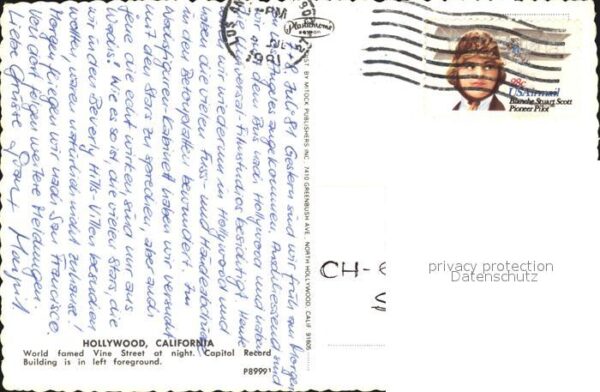 8. Juli 81 Gestern sind wir früh am Morgen
angekommen. Anschliessend sind
wir mit dem Bus nach Hollywood und haben
die Universal-Filmstudios besichtigt. Heute
sind wir wiederum in Hollywood und
haben die vielen Fuss- und Handabdrücke
in den Betonplatten bewundert. Im
Wachsfiguren Kabinett haben wir versucht
mit den Stars zu sprechen, aber auch
die echt wirken sind nur aus
Wachs. Wie so die vielen Stars, die
wir in den Beverly Hills-Villen besuchen
wollten, waren natürlich nicht zuhause!
Morgen fliegen wir nach San Francisco.
Von dort folgen weitere Meldungen.
Liebe Grüsse
HOLLYWOOD, CALIFORNIA
World famed Vine Street at night. Capitol Record
Building is in left foreground.
P89991
DIST. BY MITOCK PUBLISHERS INC., 7410 GREENBUSH AVE. NORTH HOLLYWOOD, CALIF. 91605
Plastichrome
LOS
PM
1981
28c
USAirmail
Blanche Stuart Scott
Pioneer Pilot
CH-
privacy protection
Datenschutz